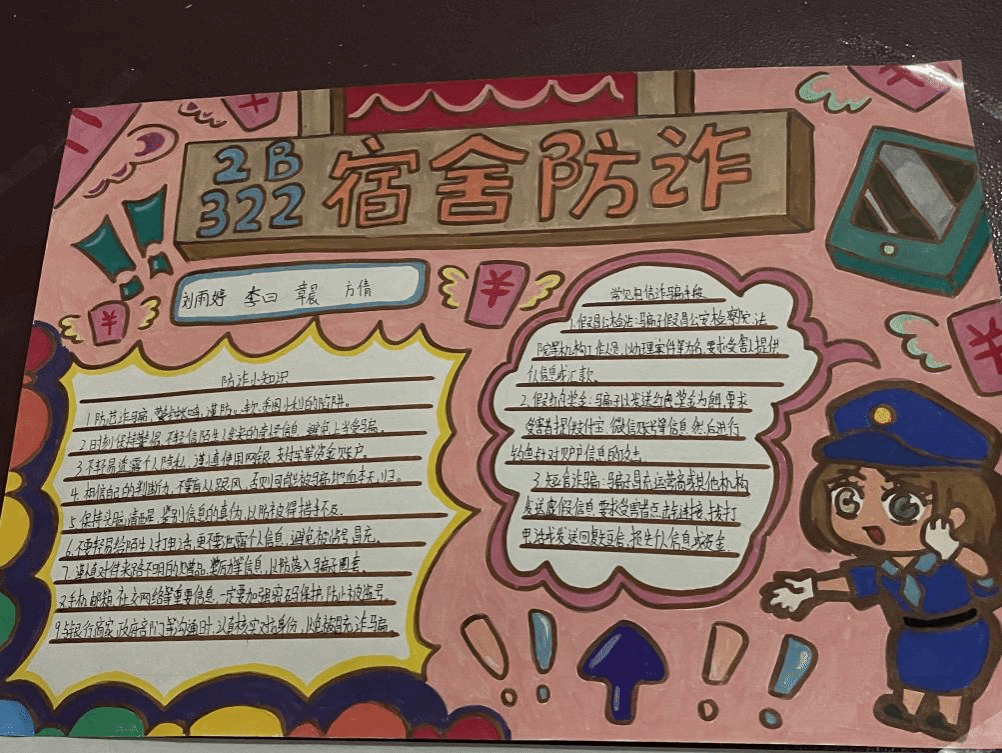 2B
322
宿舍防诈
刘雨婷 李曰 章晨 方倩
防诈小知识
1.防范诈骗,
2.时刻保持警惕,不轻信陌生人发来的信息,避免上当受骗。
3.不轻易透露个人隐私,谨慎使用网银、支付宝等资金账户。
4.相信自己的判断力,不要盲从跟风,否则可能被骗地血本无归。
5.保持头脑清醒,鉴别信息的真伪,以防被得措手不及。
6.不要轻易给陌生人打电话,更不要泄露个人信息,避免被冒充。
7.谨慎对待来路不明的、等信息,以防落入骗子圈套。
8.手机、邮箱、社交网络等重要信息,一定要加强密码保护,防止被盗号。
9.与银行商家、政府部门等沟通时,认真核实对方身份,以免被冒充诈骗。
常见电信诈骗手段
1.假冒公检法:骗子假冒公安、检察院、法
院等机构工作人员,以办理案件等为名,要求受害人提供
个人信息或汇款。
2.假红包奖金:骗子以发送红包、奖金为饵,要求
受害者提供支付宝、微信账号等信息,然后进行
钓鱼针对用户信息的攻击。
3.短信诈骗:骗子冒充运营商或其他机构,
发送虚假信息,要求受害者点击链接,拨打
电话或发送回复短信,损失个人信息或资金
¥
¥
¥